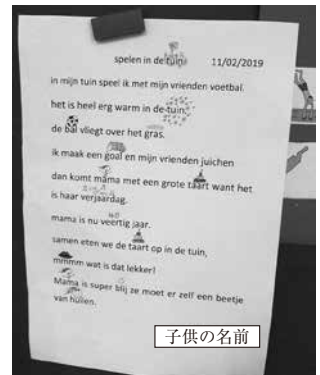 spelen in de tuin 11/02/2019
in mijn tuin speel ik met mijn vrienden voetbal.
het is heel erg warm in de tuin.
de bal vliegt over het gras.
ik maak een goal en mijn vrienden juichen
dan komt mama met een grote taart want het
is haar verjaardag.
mama is nu veertig jaar.
samen eten we de taart op in de tuin,
mmmm wat is dat lekker!
Mama is super blij ze moet er zelf een beetje
van huilen.
子供の名前